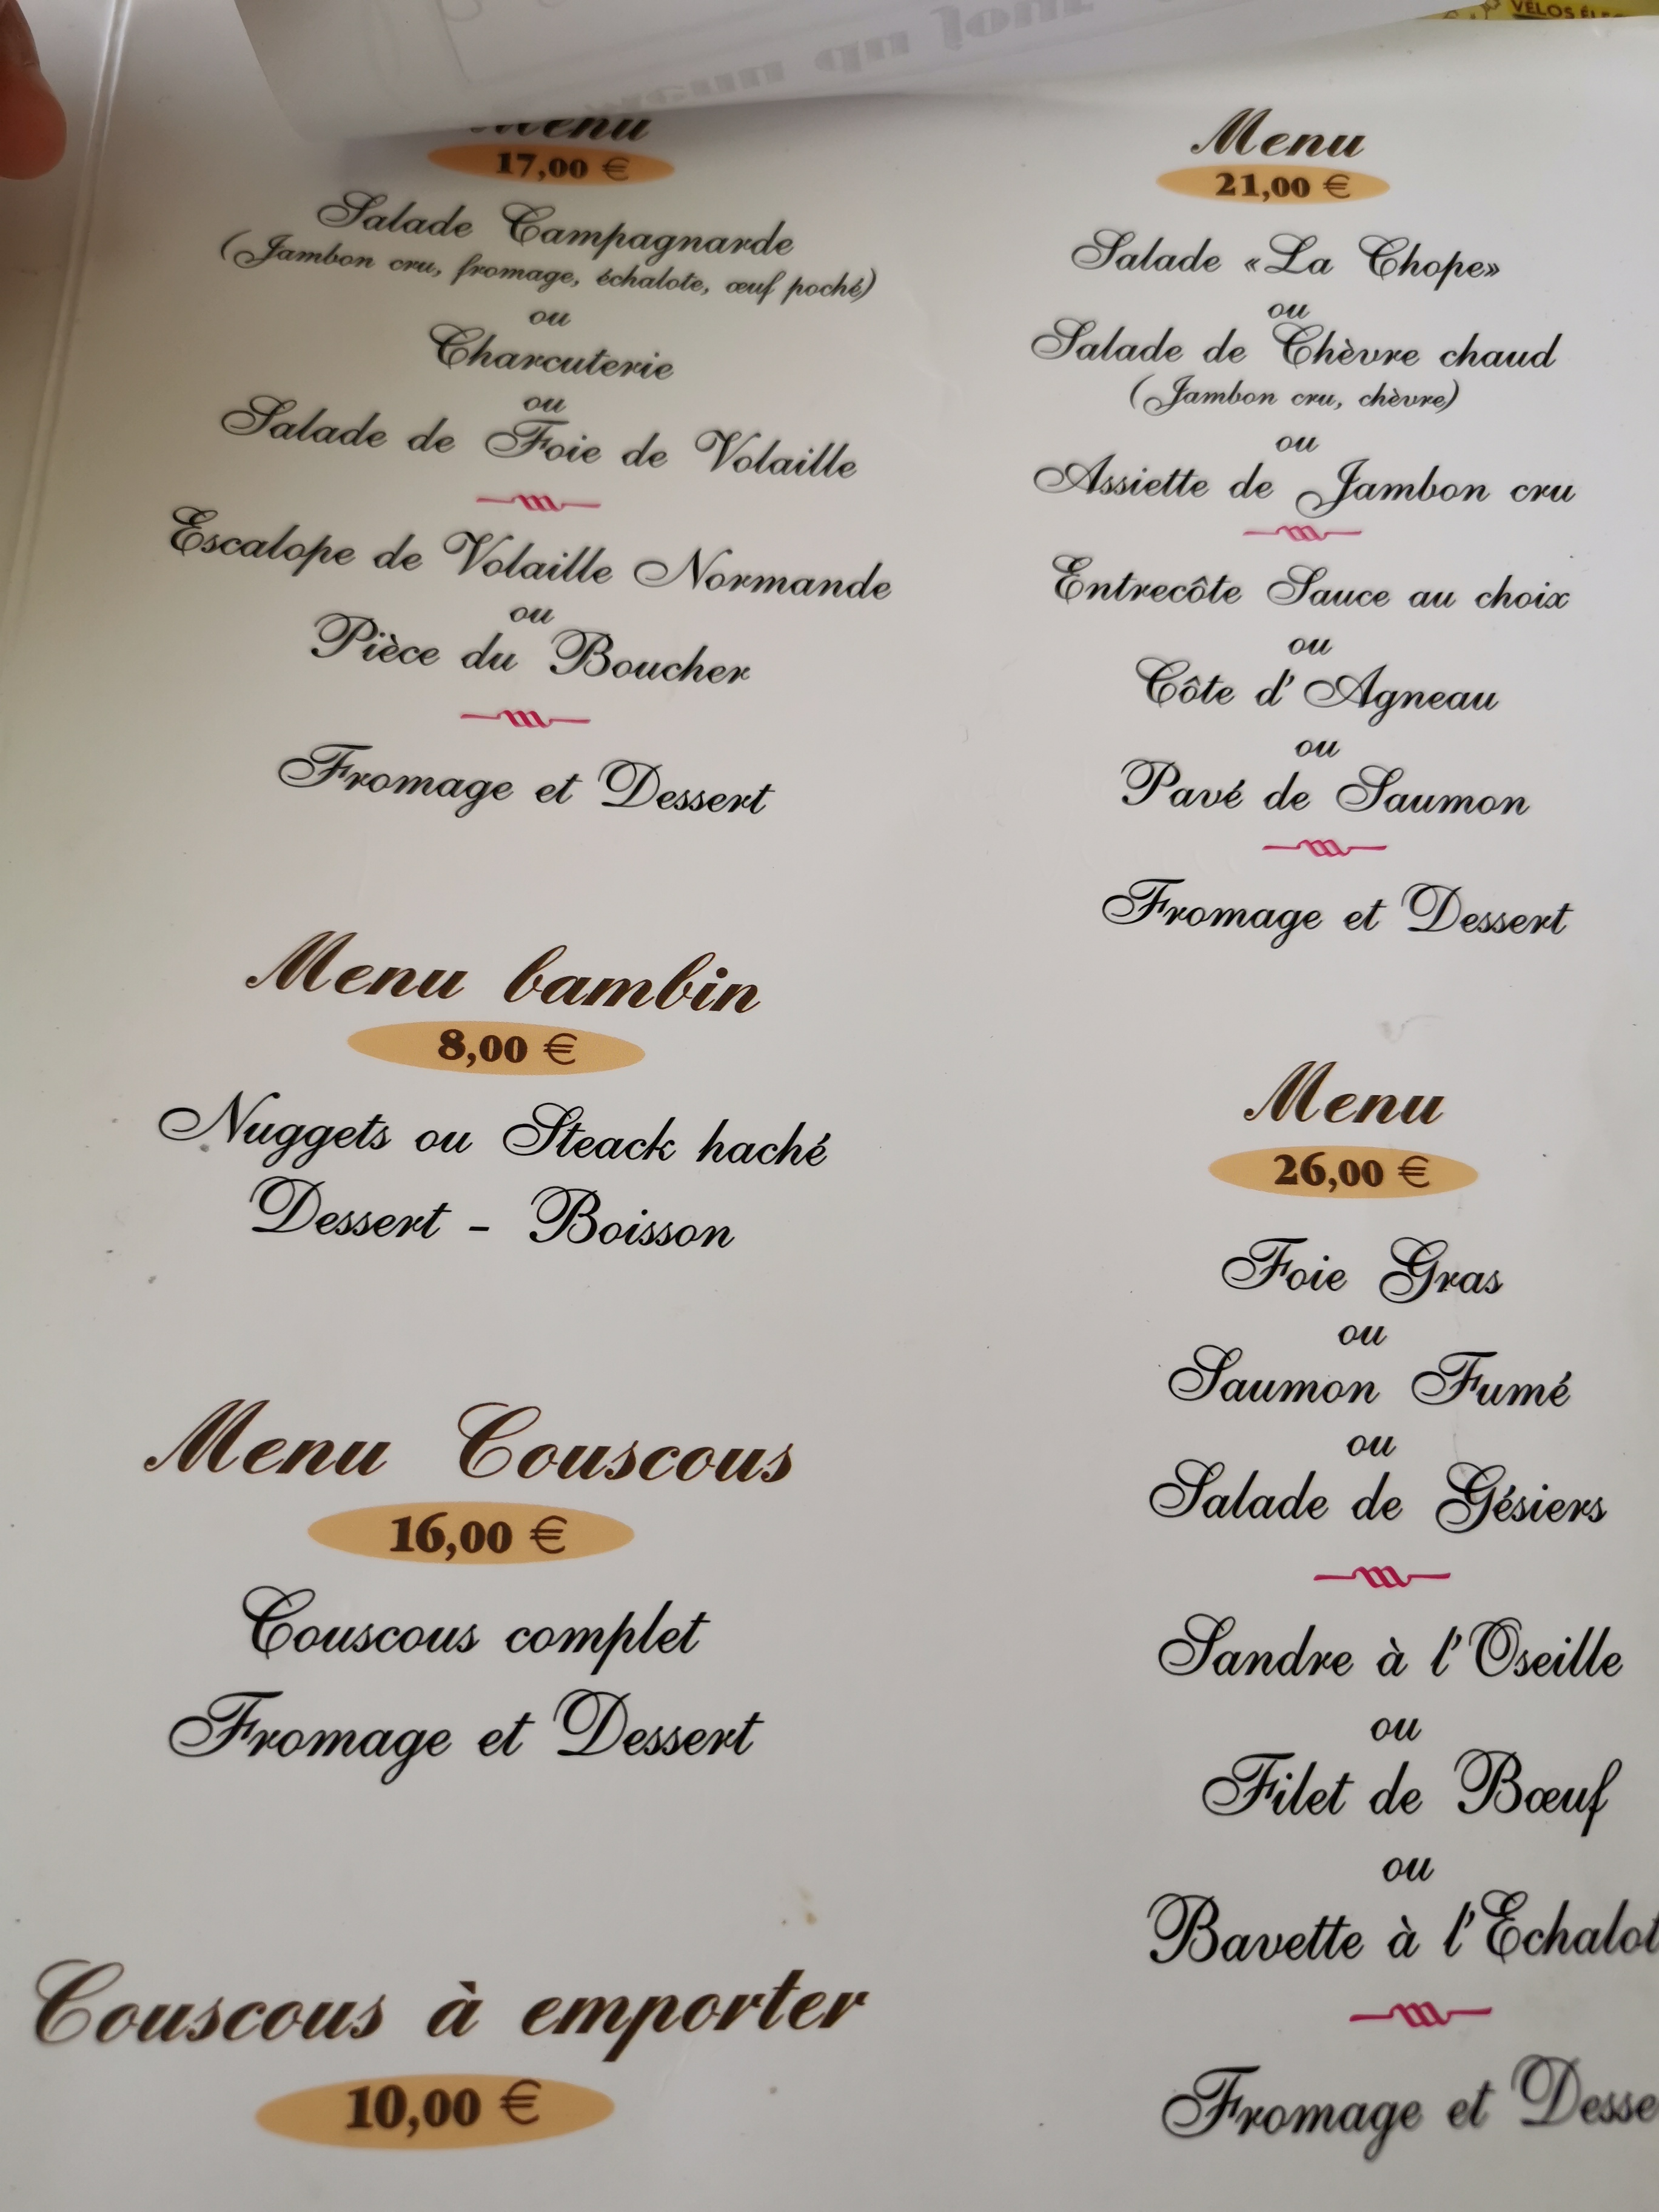 menu du jour
VÉLOS
Menu
17,00 €
Salade Campagnarde
(Jambon cru, fromage, échalote, œuf poché)
ou
Charcuterie
ou
Salade de Foie de Volaille
Escalope de Volaille Normande
ou
Pièce du Boucher
Fromage et Dessert
Menu bambin
8,00 €
Nuggets ou Steack haché
Dessert - Boisson
Menu Couscous
16,00 €
Couscous complet
Fromage et Dessert
Couscous à emporter
10,00 €
Menu
21,00 €
Salade «La Chope»
ou
Salade de Chèvre chaud
(Jambon cru, chèvre)
ou
Assiette de Jambon cru
Entrecôte Sauce au choix
ou
Côte d'Agneau
ou
Pavé de Saumon
Fromage et Dessert
Menu
26,00 €
Foie Gras
ou
Saumon Fumé
ou
Salade de Gésiers
Sandre à l'Oseille
ou
Filet de Bœuf
ou
Bavette à l'Echalot
Fromage et Desse